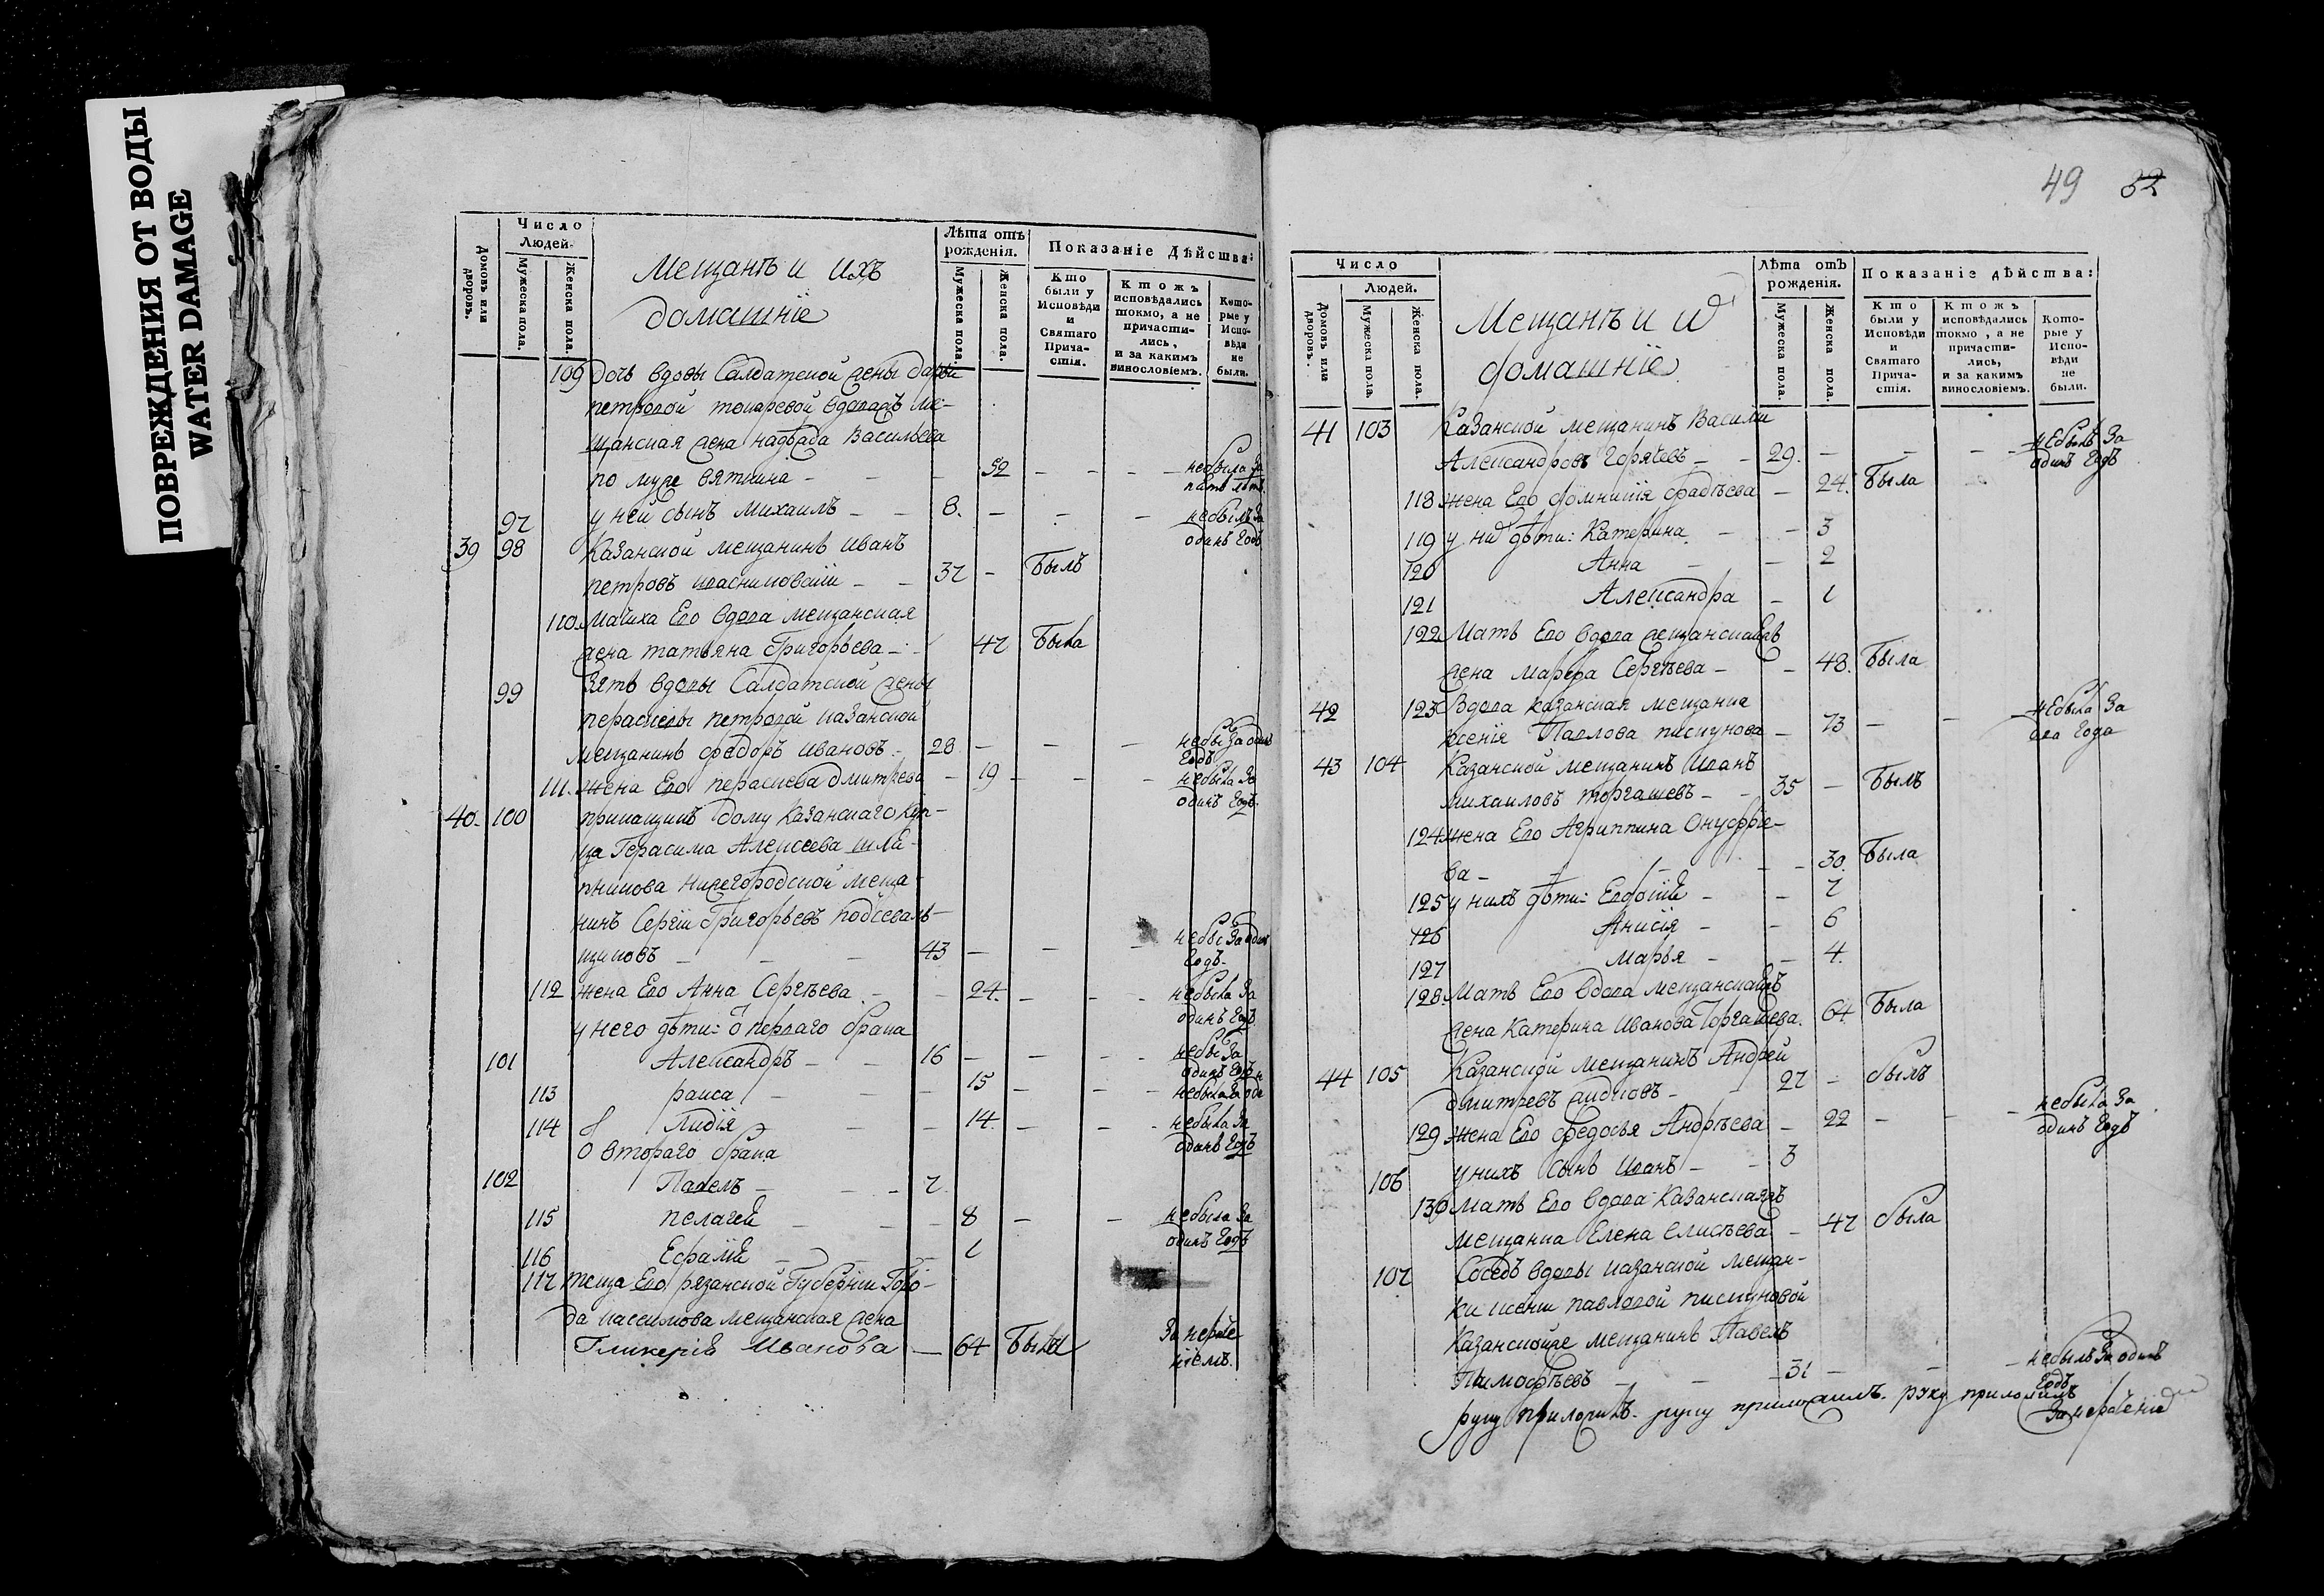 ПОВРЕЖДЕНИЯ ОТ ВОДЫ
WATER DAMAGE
Домовъ или дворовъ.
Число
Людей.
Мужеска пола.
Женска пола.
Мещанъ и ихъ
домашніе
Лѣта отъ
рожденія.
Мужеска пола.
Женска пола.
Показаніе Дѣйства:
Кто
были у
Исповѣди
и
Святаго
Прича-
стія.
Ктожъ
исповѣдались
токмо, а не
причасти-
лись,
и за какимъ
винословіемъ.
Кото-
рые у
Испо-
вѣди
не
были.
109 Дочь вдовы Салдатской жены Дарьи
петровой токаревой вдова жъ ме-
щанская жена надѣжда Васильева
по муже вяткина - - - 52 - - - - небыла за
пять лѣтъ
97 у ней сынъ Михаилъ - - 8. - - - небылъ за
одинъ Годъ
39 98 Казанской мещанинъ Иванъ
петровъ - - 37 - Былъ
110. Мачиха Его вдова мещанская
жена татьяна Григорьева - 47 Была
99 Зять вдовы Салдатской жены
перасковьи петровой казанской
мещанинъ федоръ Ивановъ - 28 - - - небылъ за одинъ
Годъ
111. жена Его перасковья дмитрева - 19 - - - небыла за
одинъ Годъ.
40. 100 прикащикъ дому Казанскаго куп-
ца Герасима Алексеева шля-
пникова нижегородской меща-
нинъ Сергіи Григорьевъ подсеваль-
щиковъ - - - 43 - - - небылъ за одинъ
Годъ.
112 жена Его Анна Сергѣева - - 24. - - - небыла за
одинъ Годъ
у него дѣти: ѿ перваго брака
101 Александръ - - 16 - - - - небылъ за
одинъ Годъ
113 раиса - - - 15 - - - небыла за одинъ
114 Лидія - - - 14. - - - небыла за
одинъ Годъ
ѿ втораго брака
102 Павелъ - - - 7
115 пелагея - - - 8 - - небыла за
одинъ Годъ
116 - - - 1
117 теща Его рязанской Губерніи Горо-
да кассимова мещанская жена
Гликерія Иванова - 64 Была За нераде
ніемъ.
49 52
Число
Домовъ или дворовъ.
Людей.
Мужеска пола.
Женска пола.
Мещанъ и ихъ
домашніе
Лѣта отъ
рожденія.
Мужеска пола.
Женска пола.
Показаніе дѣйства:
Кто
были у
Исповѣди
и
Святаго
Прича-
стія.
Ктожъ
исповѣдались
токмо, а не
причасти-
лись,
и за какимъ
винословіемъ.
Кото-
рые у
Испо-
вѣди
не
были.
41 103 Казанской мещанинъ Василіи
Александровъ Горячевъ - - 29. - - - - небылъ за
одинъ Годъ
118 жена Его - 24. Была
119 у них дѣти: Катерина - - 3
120 Анна - - 2
121 Александра - 1
122 Мать Его вдова мещанская жъ
жена марфа Сергѣева - - 48. Была
42 123 Вдова казанская мещанка
ксенія Павлова пискунова - 73 - - - небыла за
два года
43 104 Казанской мещанинъ Иванъ
михаиловъ торгашевъ - - 35 - Былъ
124 жена Его Агриппина Онуфріе-
ва - - - - - 30. Была
125 у нихъ дѣти: - - 7
126 Анисія - - 6
127 марья - - 4.
128. Мать Его вдова мещанская жъ
жена Катерина Иванова Торгашева. 64. Была
44 105 Казанской мещанинъ Андрей
дмитревъ - - 27 - былъ
129 жена Его федосья Андрѣева - 22 - - - небыла за
одинъ Годъ
106 у нихъ сынъ Иванъ - - 3
130 Мать Его вдова Казанская жъ
мещанка Елена елисѣева - 47 была
107 Соседъ вдовы казанской мещан-
ки ксеніи павловой пискуновой
Казанской же мещанинъ Павелъ
Тимофѣевъ - - - 31 - - - небылъ за одинъ
Годъ
руку приложилъ. руку приложилъ. руку приложилъ
За нерадѣніемъ